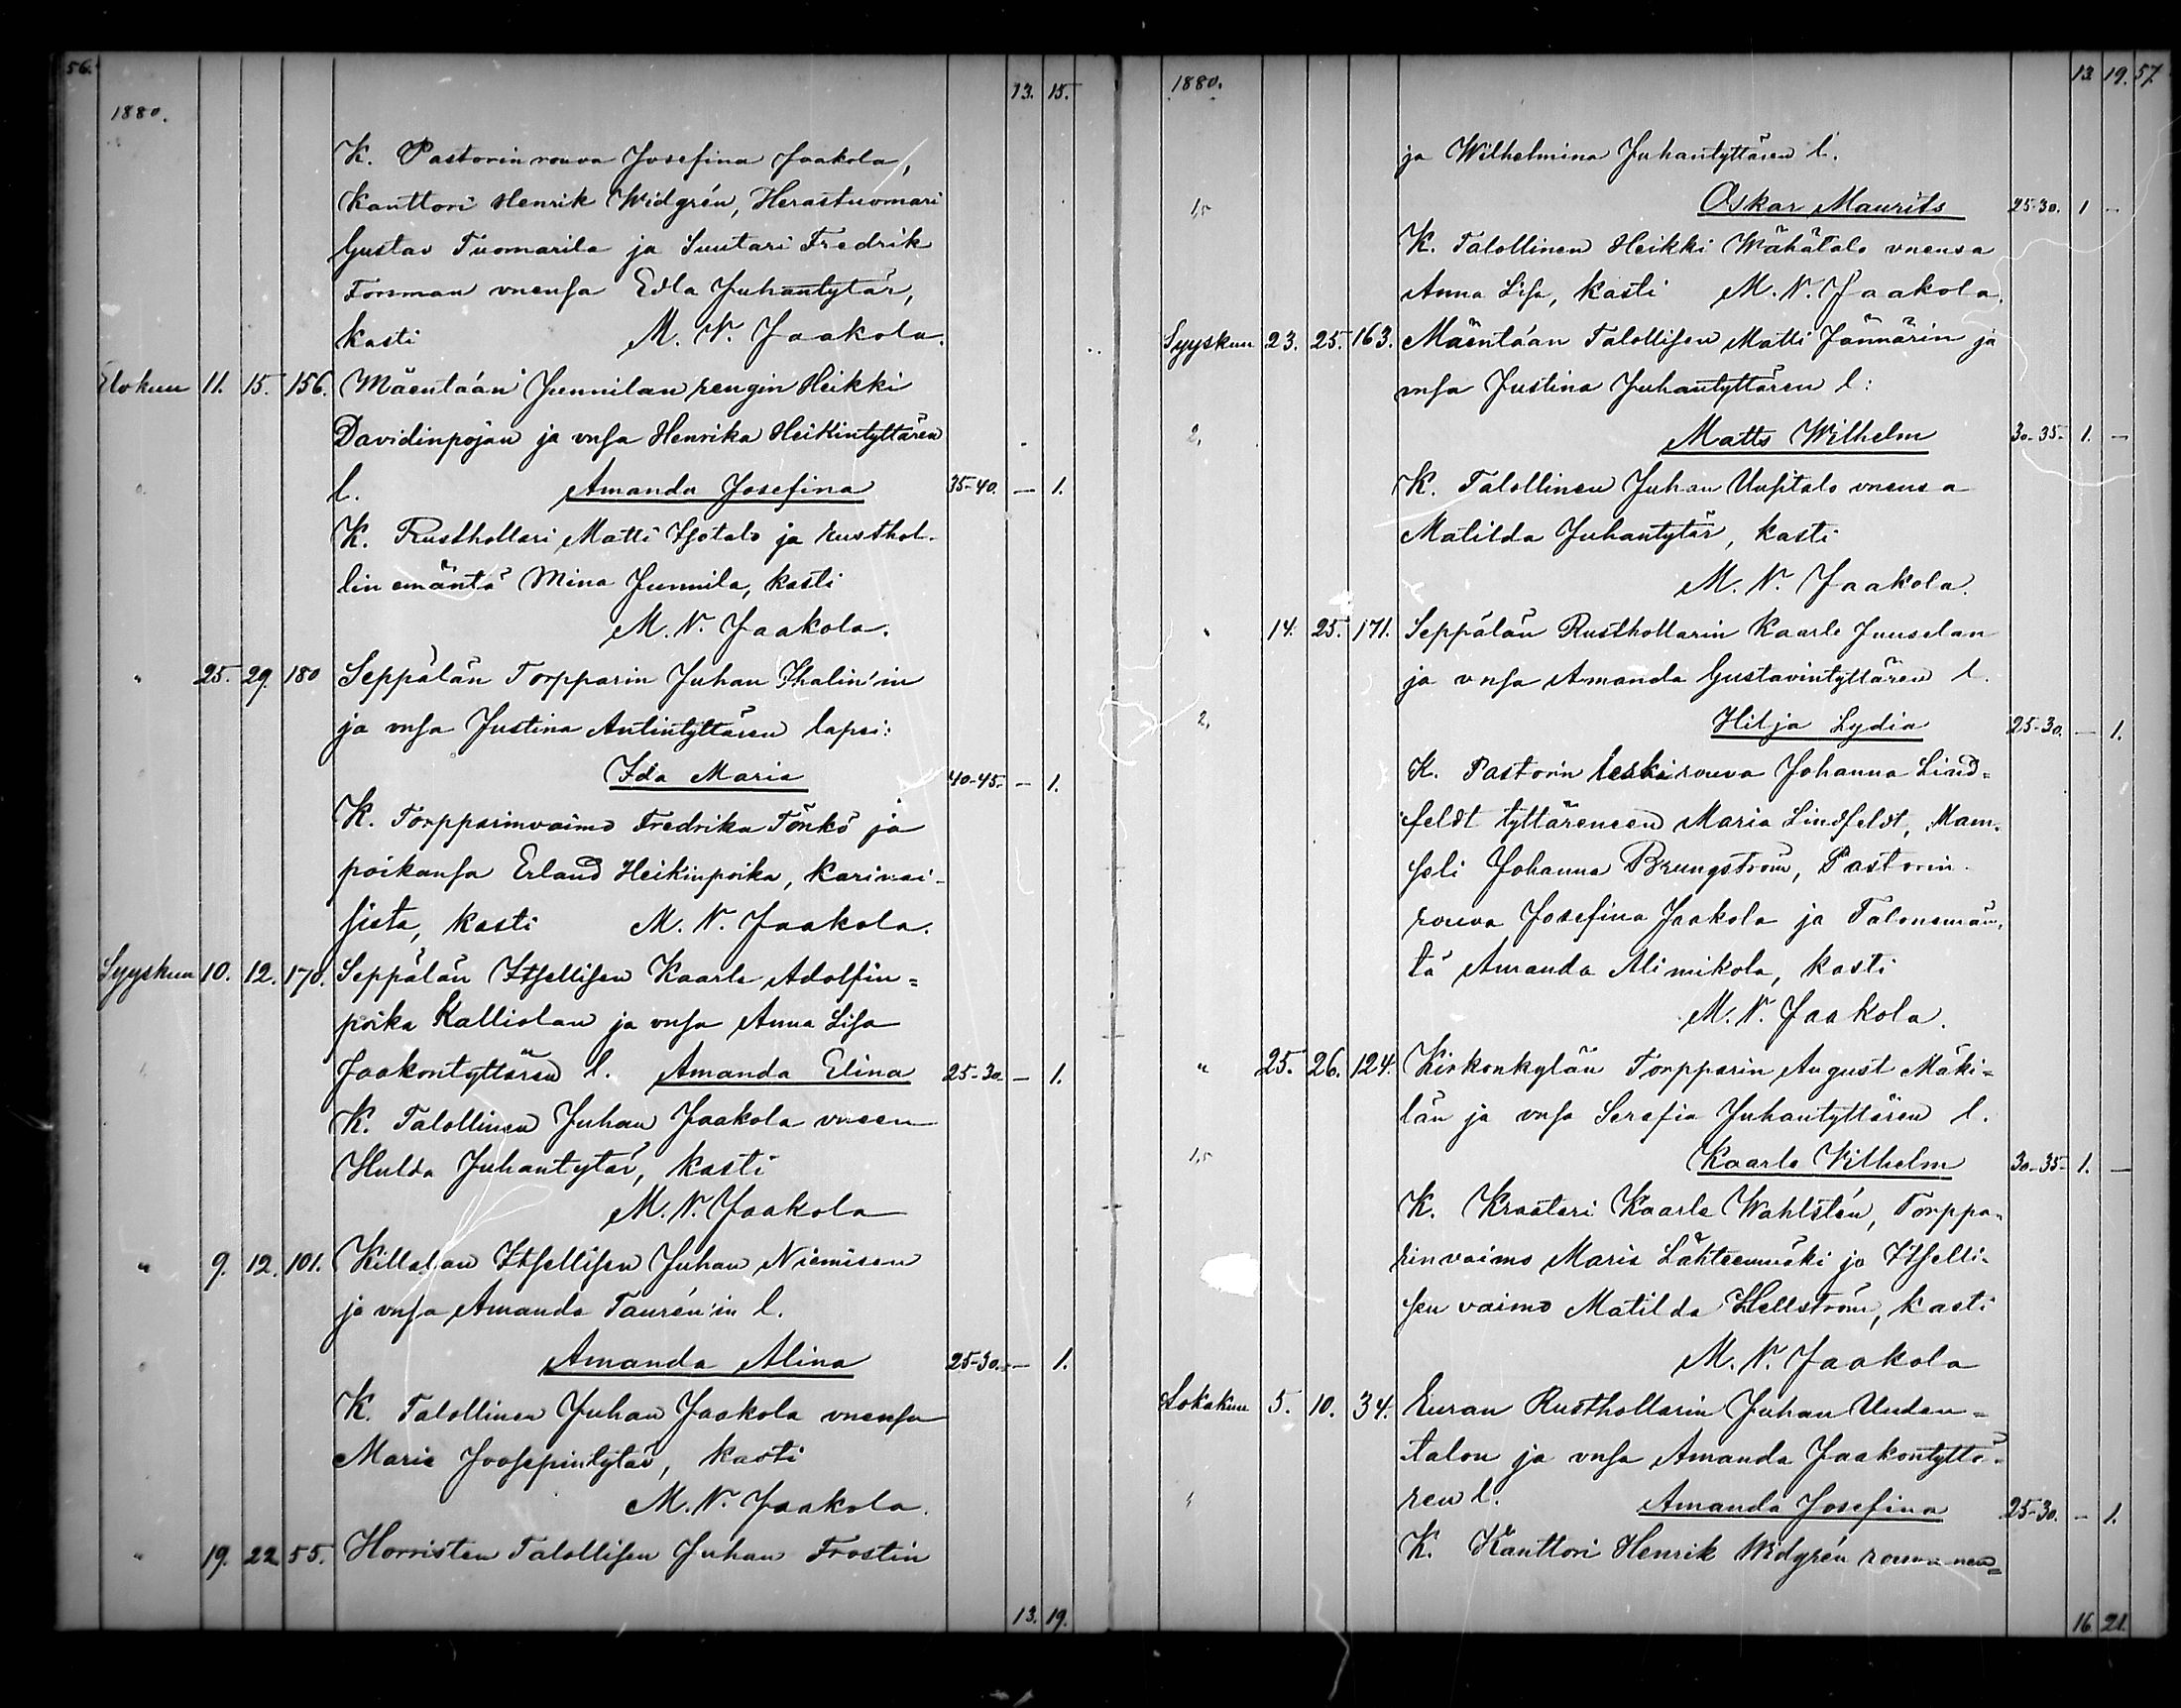 56.
1880. 13. 15.
K. Pastorin rouva Josefina Jaakola,
Kanttori Henrik Widgrén, Herastuomari
Gustav Tuomarila ja Suutari Fredrik
Forsman vnensa Edla Juhantytär,
kasti M. N. Jaakola.
Elokuu 11. 15. 156. Mäentaán Junnilan rengin Heikki
Davidinpojan ja vnsa Henrika Heikintyttären
l. Amanda Josefina 35-40. — 1.
K. Rusthollari Matti Isotalo ja rusthol-
lin emäntä Mina Junnila, kasti
M. N. Jaakola.
" 25. 29. 180 Seppälän Torpparin Juhan Thalin'in
ja vnsa Justina Antintyttären lapsi:
Ida Maria 40-45. — 1.
K. Torpparinvaimo Fredrika Tönkö ja
poikansa Erland Heikinpoika, karivai-
sista, kasti M. N. Jaakola.
Syyskuu 10. 12. 170. Seppälän Itsellisen Kaarle Adolfin=
poika Kalliolan ja vnsa Anna Lisa
Jaakontyttären l. Amanda Elina 25-30. — 1.
K. Talollinen Juhan Jaakola vneen
Hulda Juhantytär, kasti
M. N. Jaakola
" 9. 12. 101. Killalan Itsellisen Juhan Niemisen
ja vnsa Amanda Taurén'in l.
Amanda Alina 25-30. — 1.
K. Talollinen Juhan Jaakola vnensa
Maria Joosepintytär, kasti
M. N. Jaakola.
" 19. 22 55. Horristen Talollisen Juhan Frostin
13. 19.
1880. 13. 19. 57.
ja Wilhelmina Juhantyttären l.
1,5 Oskar Maurits 25-30. 1 —
K. Talollinen Heikki Wähätalo vnensa
Anna Lisa, kasti M. N. Jaakola.
Syyskuu 23. 25. 163. Mäentaán Talollisen Matti Jännärin ja
vnsa Justina Juhantyttären l:
2, Matts Wilhelm 30-35. 1. —
K. Talollinen Juhan Uusitalo vnensa
Matilda Juhantytär, kasti
M. N. Jaakola.
" 14. 25. 171. Seppälän Rusthollarin Kaarle Juuselan
ja vnsa Amanda Gustavintyttären l.
2, Hilja Lydia 25-30. — 1.
K. Pastorin leskirouva Johanna Lind=
feldt tyttäreneen Maria Lindfeldt, Mam-
seli Johanna Brungström, Pastorin
rouva Josefina Jaakola ja Talonemän-
tä Amanda Alimikola, kasti
M. N. Jaakola.
" 25. 26. 124. Kirkonkylän Torpparin August Mäki=
län ja vnsa Serafia Juhantyttären l.
1,5 Kaarle Vilhelm 30-35. 1. —
K. Kraatari Kaarle Wahlstén, Torppa-
rinvaimo Maria Lähteenmäki ja Itselli-
sen vaimo Matilda Hellström, kasti
M. N. Jaakola
Lokakuu 5. 10. 34. Euran Rusthollarin Juhan Uuden=
talon ja vnsa Amanda Jaakontyttä-
ren l. Amanda Josefina 25-30. — 1.
K. Kanttori Henrik Widgrén rouvanen=
16 21.